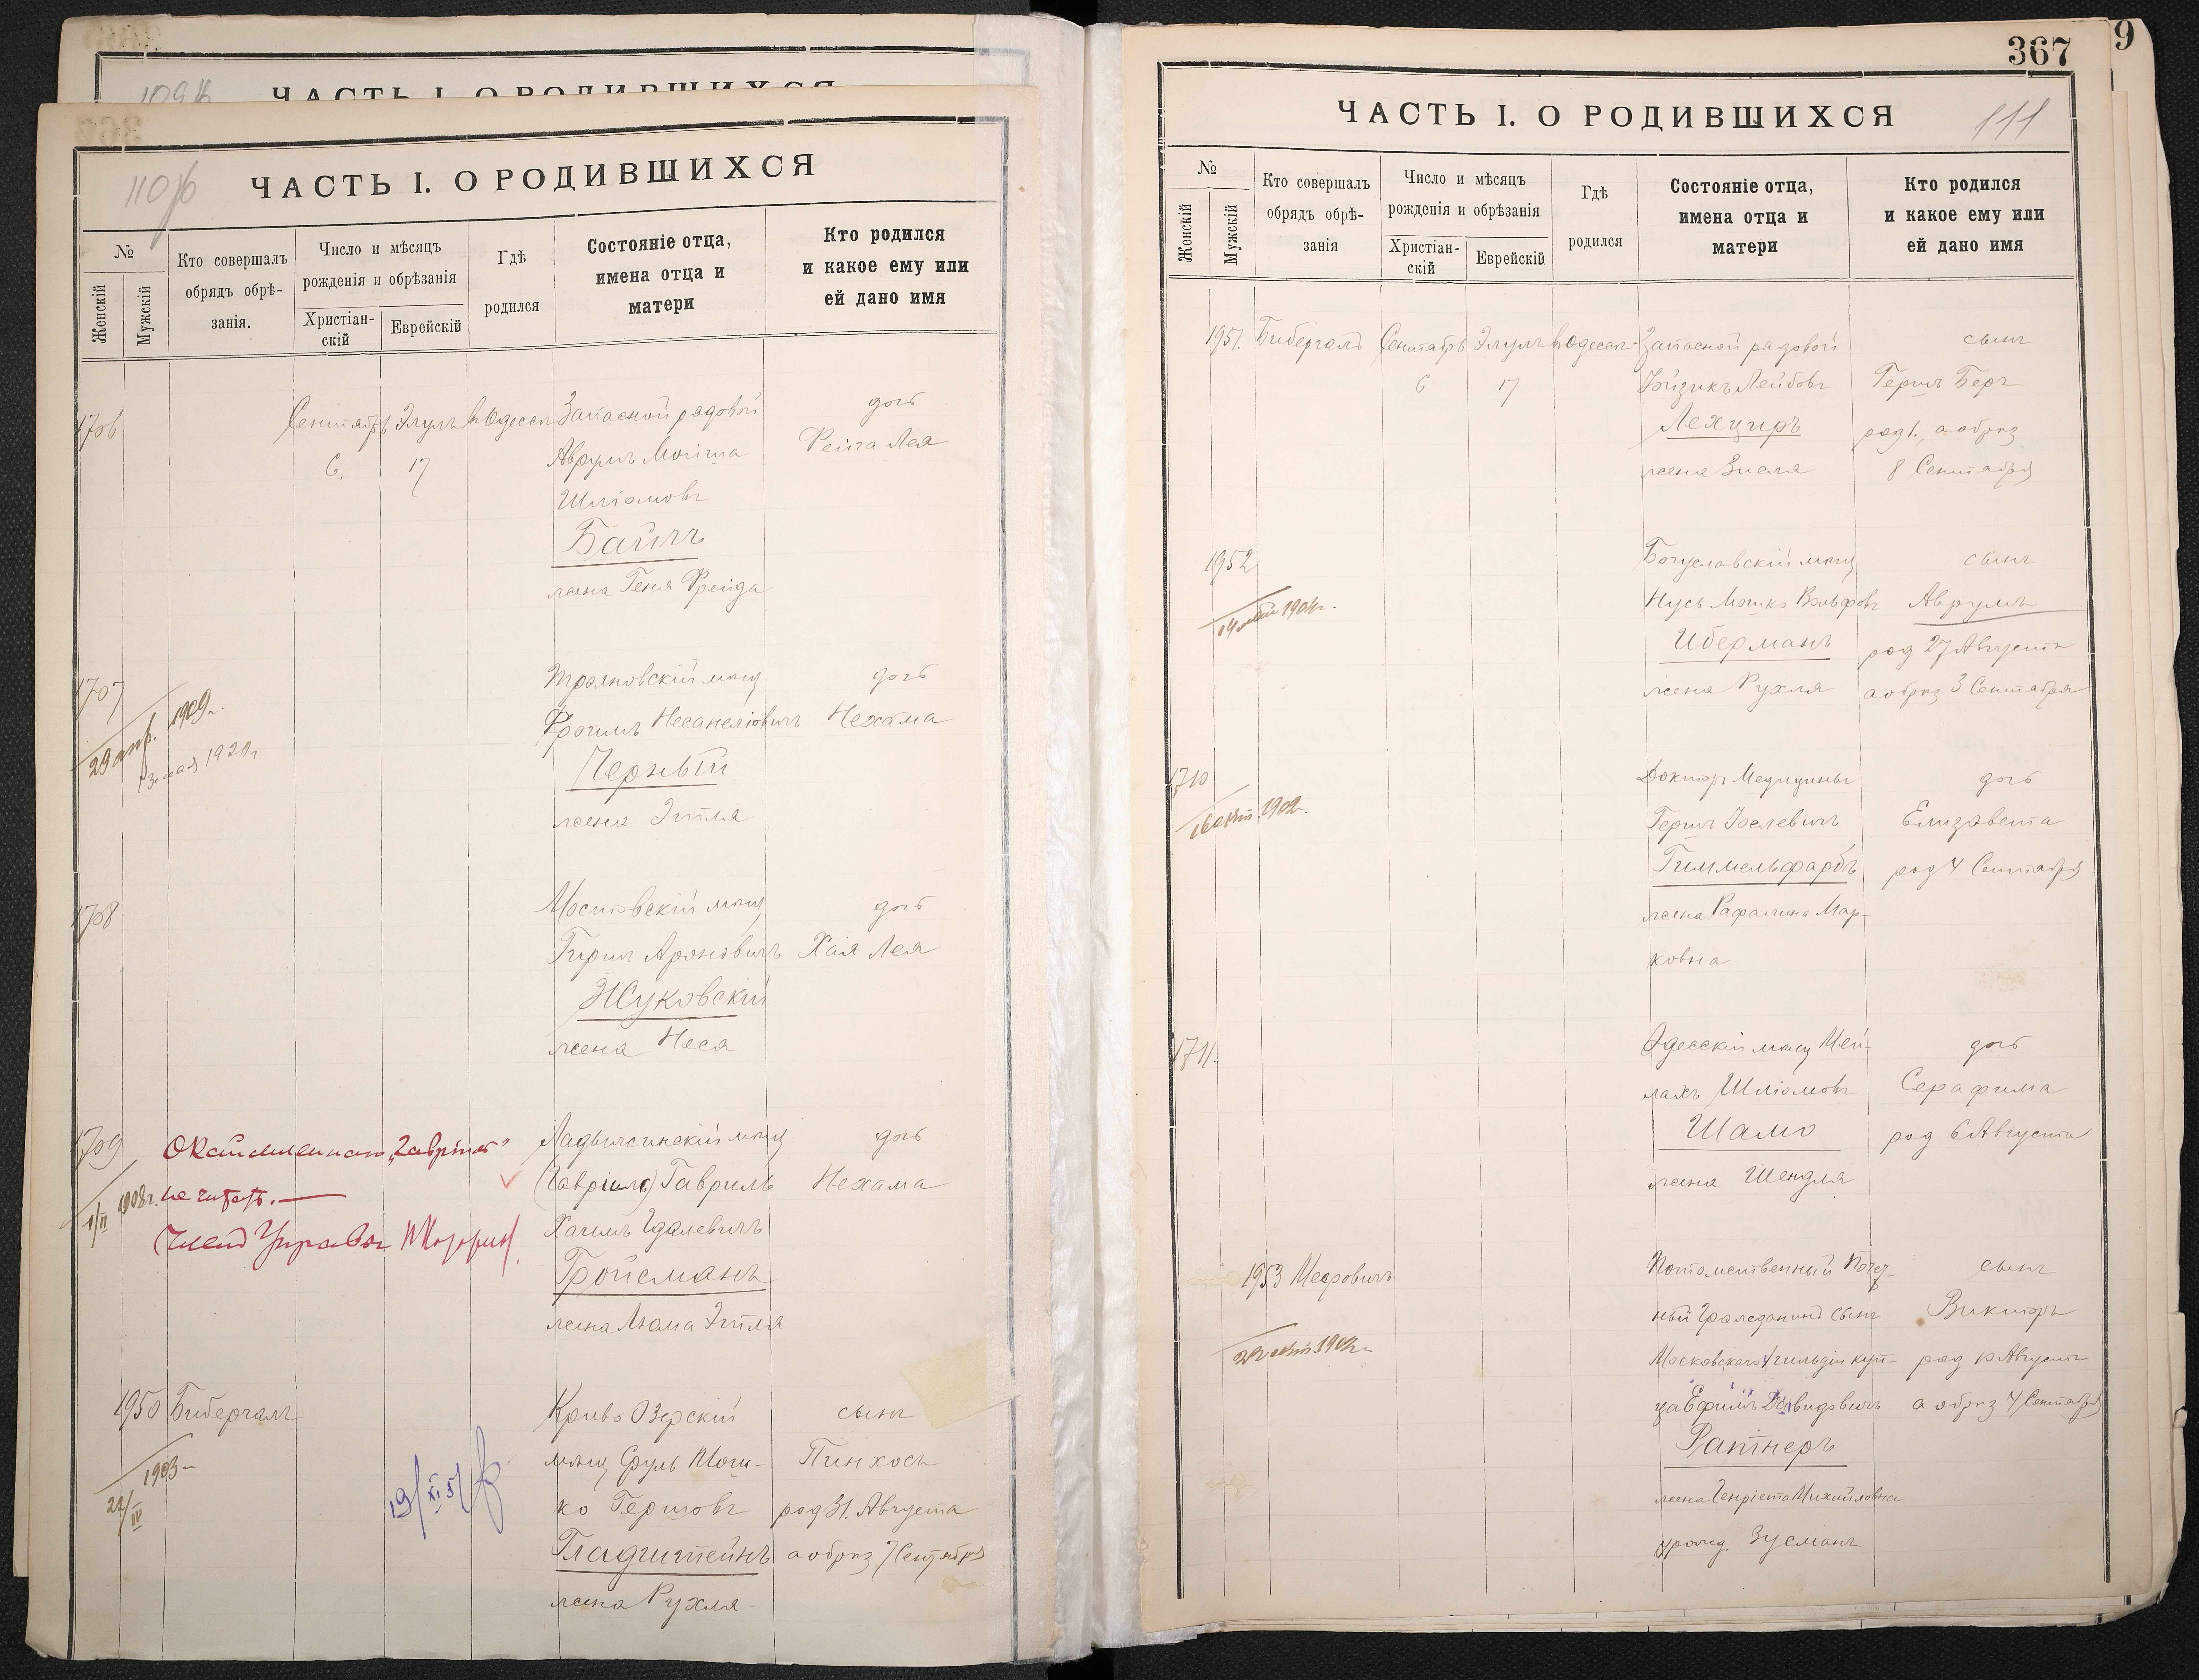 ЧАСТЬ I. О РОДИВШИХСЯ
110
ЧАСТЬ I. О РОДИВШИХСЯ
№
Женскій
Мужскій
Кто совершалъ
обрядъ обрѣ-
занія.
Число и мѣсяцъ
рожденія и обрѣзанія
Христіан-
скій
Еврейскій
Гдѣ
родился
Состояніе отца,
имена отца и
матери
Кто родился
и какое ему или
ей дано имя
1706
Сентябрь
6.
Элулъ
17
въ Одессѣ
Запасной рядовой
Аврумъ
Шліомовъ
Байлъ
жена Геня Фрейда
дочь
Фейга Лея
1707
29 апр. 1909г.
1921г.
мѣщ
Фроимъ
Черный
жена Этля
дочь
Нехама
1708
мѣщ
Гиршъ Ароновичъ
Жуковскій
жена Неса
дочь
Хая Лея
1709
1/II 1908г.
не читать.
Членъ Управы
Ладыжинскій мѣщ
(Гавріилъ) Гавриль
Хаимъ Гдалевичъ
Гройсманъ
жена Этля
дочь
Нехама
1950
22/IV 1903
Бибергалъ
19/XI 5
Криво Озерскій
мѣщ Сруль Мош-
ко Гершовъ
Гладштейнъ
жена Рухля
сынъ
Пинхосъ
род 31. Августа
а обрѣз 7 Сентября
367
9
111
ЧАСТЬ I. О РОДИВШИХСЯ
№
Женскій
Мужскій
Кто совершалъ
обрядъ обрѣ-
занія
Число и мѣсяцъ
рожденія и обрѣзанія
Христіан-
скій
Еврейскій
Гдѣ
родился
Состояніе отца,
имена отца и
матери
Кто родился
и какое ему или
ей дано имя
1951.
Бибергалъ
Сентябрь
6
Элулъ
17
въ Одессѣ
Запасной рядовой
Айзикъ Лейбовъ
Лехциръ
жена Зисля
сынъ
Гершъ Беръ
род 1., а обрѣз
8 Сентября
1952
Богуславскій мѣщ
Нусь Мошко Вольфовъ
Иберманъ
жена Рухля
сынъ
Аврумъ
род 27 Августа
а обрѣз 3 Сентября
1710
1902г.
Докторъ Медицины
Гершъ Іоселевичъ
Гиммельфарбъ
жена Мар-
ковна
дочь
Елизавета
род 4 Сентября
1711.
Одесскій мѣщ Мей-
лахъ Шліомовъ
Шамо
жена Шендля
дочь
Серафима
род 6 Августа
1953
Мееровичъ
Потомственный Почет-
ный Гражданинъ сынъ
Московскаго 1 гильдіи куп-
ца Ефимъ Давидовичъ
Ратнеръ
жена Генріета Михайловна
урожд. Зусманъ
сынъ
Викторъ
род 10 Августа
а обрѣз 4 Сентября